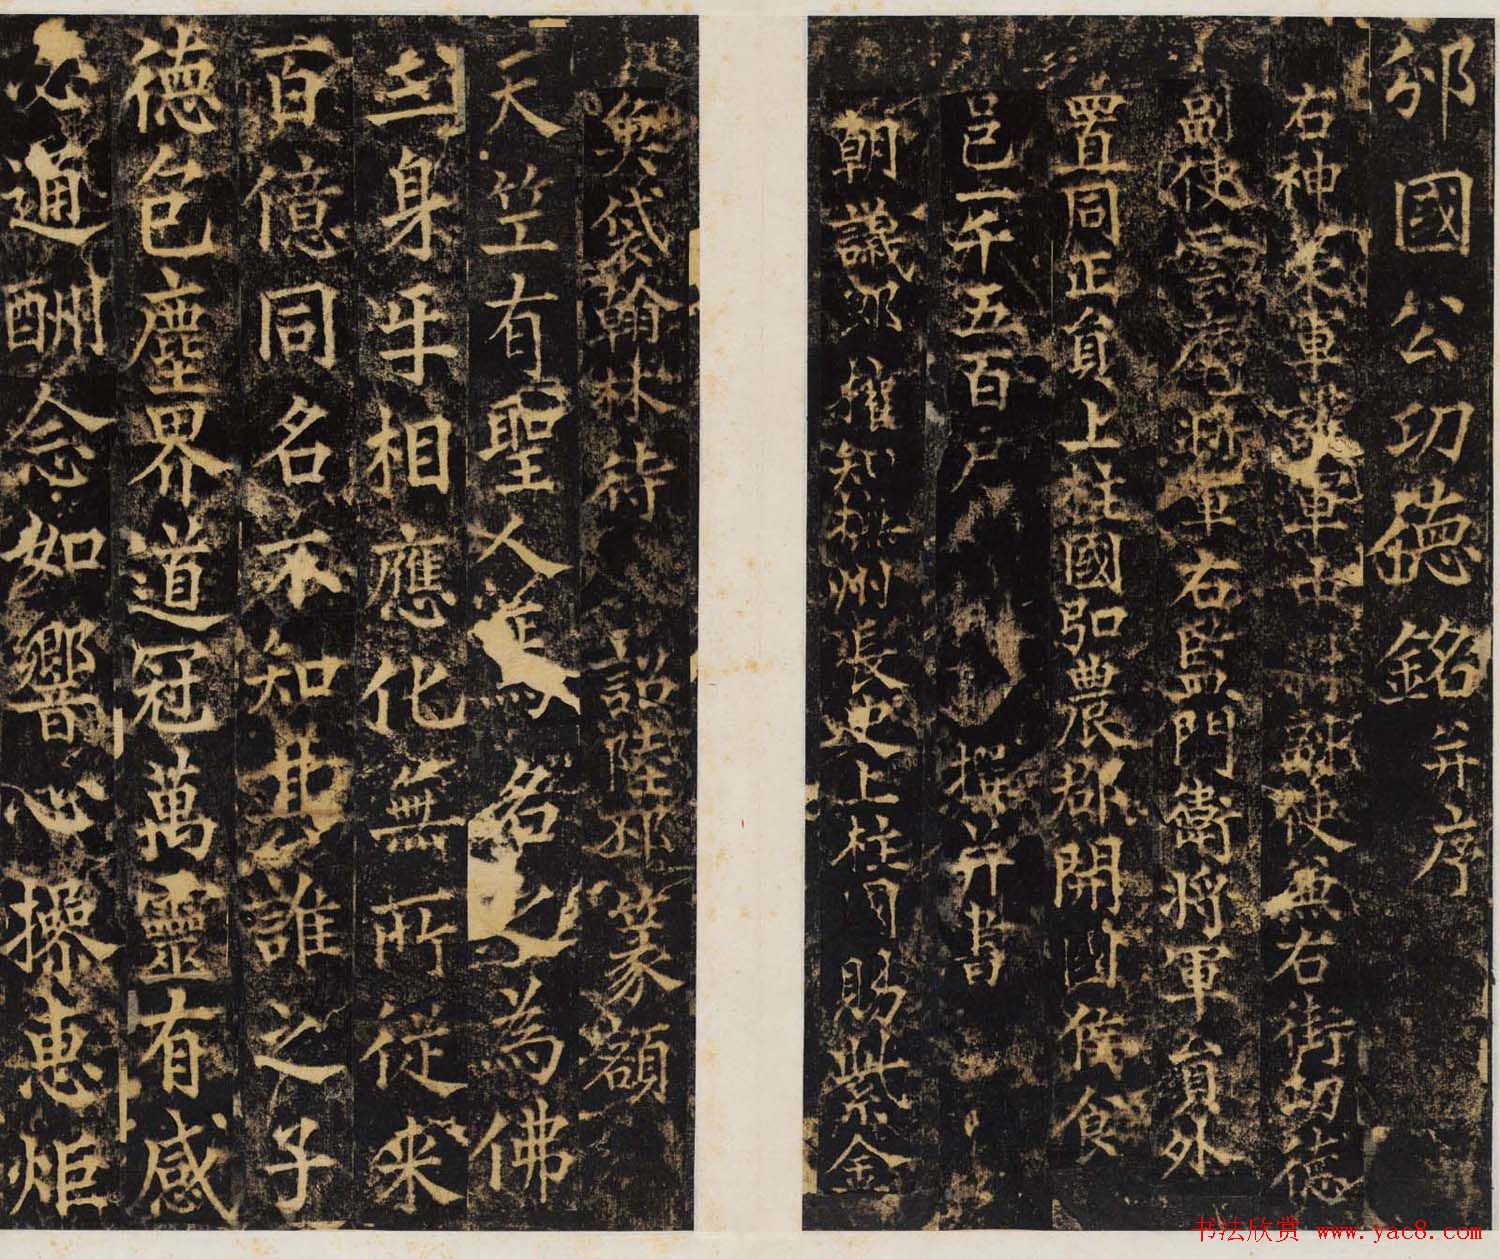 邠國公功德銘并序
右神策軍護軍中尉副使兼右街功德
副使雲麾將軍右監門衛將軍員外
置同正員上柱國弘農郡開國侯食
邑一千五百戶 撰并書
朝議郎權知州長史上柱國賜紫金
魚袋翰林待詔陸邳篆額
天竺有聖人焉名之為佛
三身牙相應化無所從來
百億同名不知其誰之子
德包塵界道冠萬靈有感
必通酬念如響心操惠炬
书法欣赏 www.yac8.com